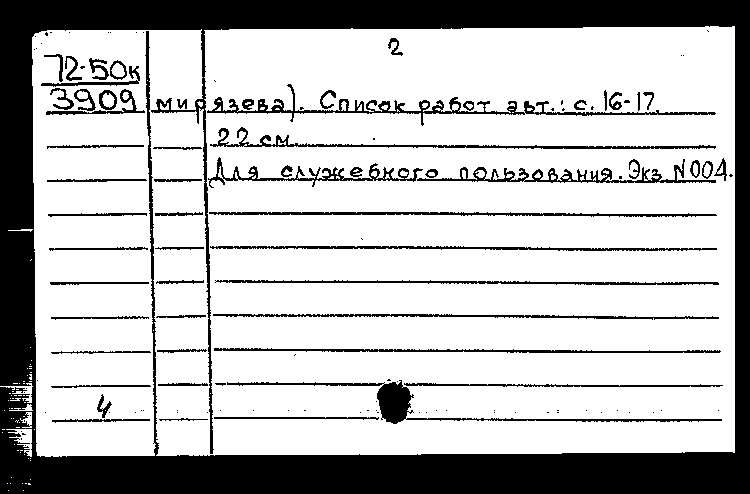 2
72-50к
3909 мирязева). Список работ авт.: с. 16-17.
22 см.
Для служебного пользования. Экз N004.
4